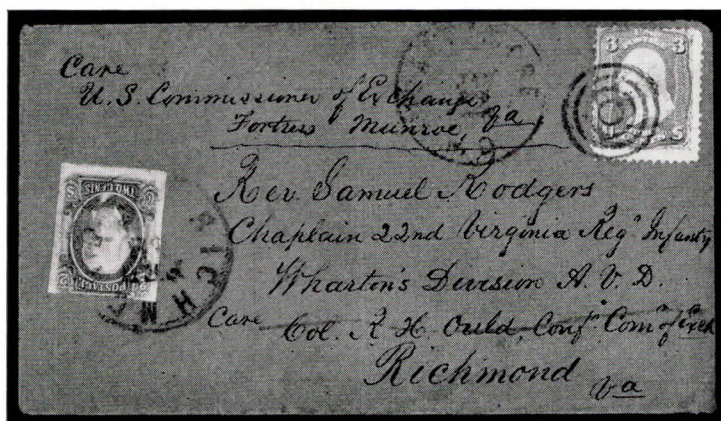 Care
U.S. Commissioner of Exchange
Fortress Munroe, Va
Rev. Samuel Rodgers
Chaplain 22nd Virginia Reg't Infantry
Wharton's Division A. V. D.
Care Col. R H. Ould, Conf. Com. of Exch
Richmond
Va
3 3
U S
TWO CENTS
POSTAGE
RICHM